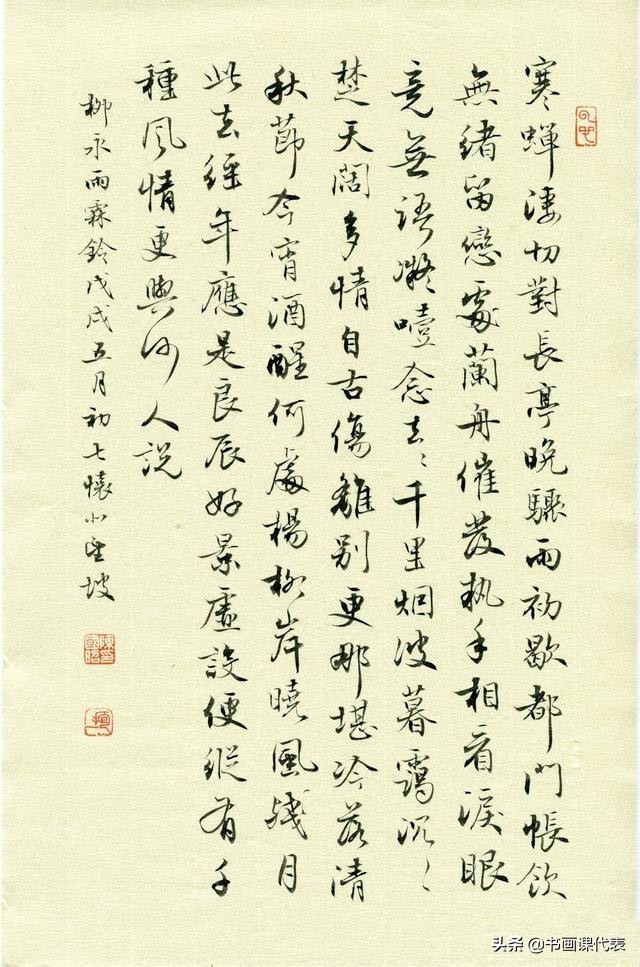 寒蝉淒切對長亭晚驟雨初歇都門帳飲
無緒留戀處蘭舟催發執手相看淚眼
竟無語凝噎念去〻千里烟波暮靄沉〻
楚天闊多情自古傷離別更那堪冷落清
秋節今宵酒醒何處楊柳岸曉風殘月
此去經年應是良辰好景虛設便縱有千
種風情更與何人說
柳永雨霖鈴戊戌五月初七懷小坡
头条 @书画课代表